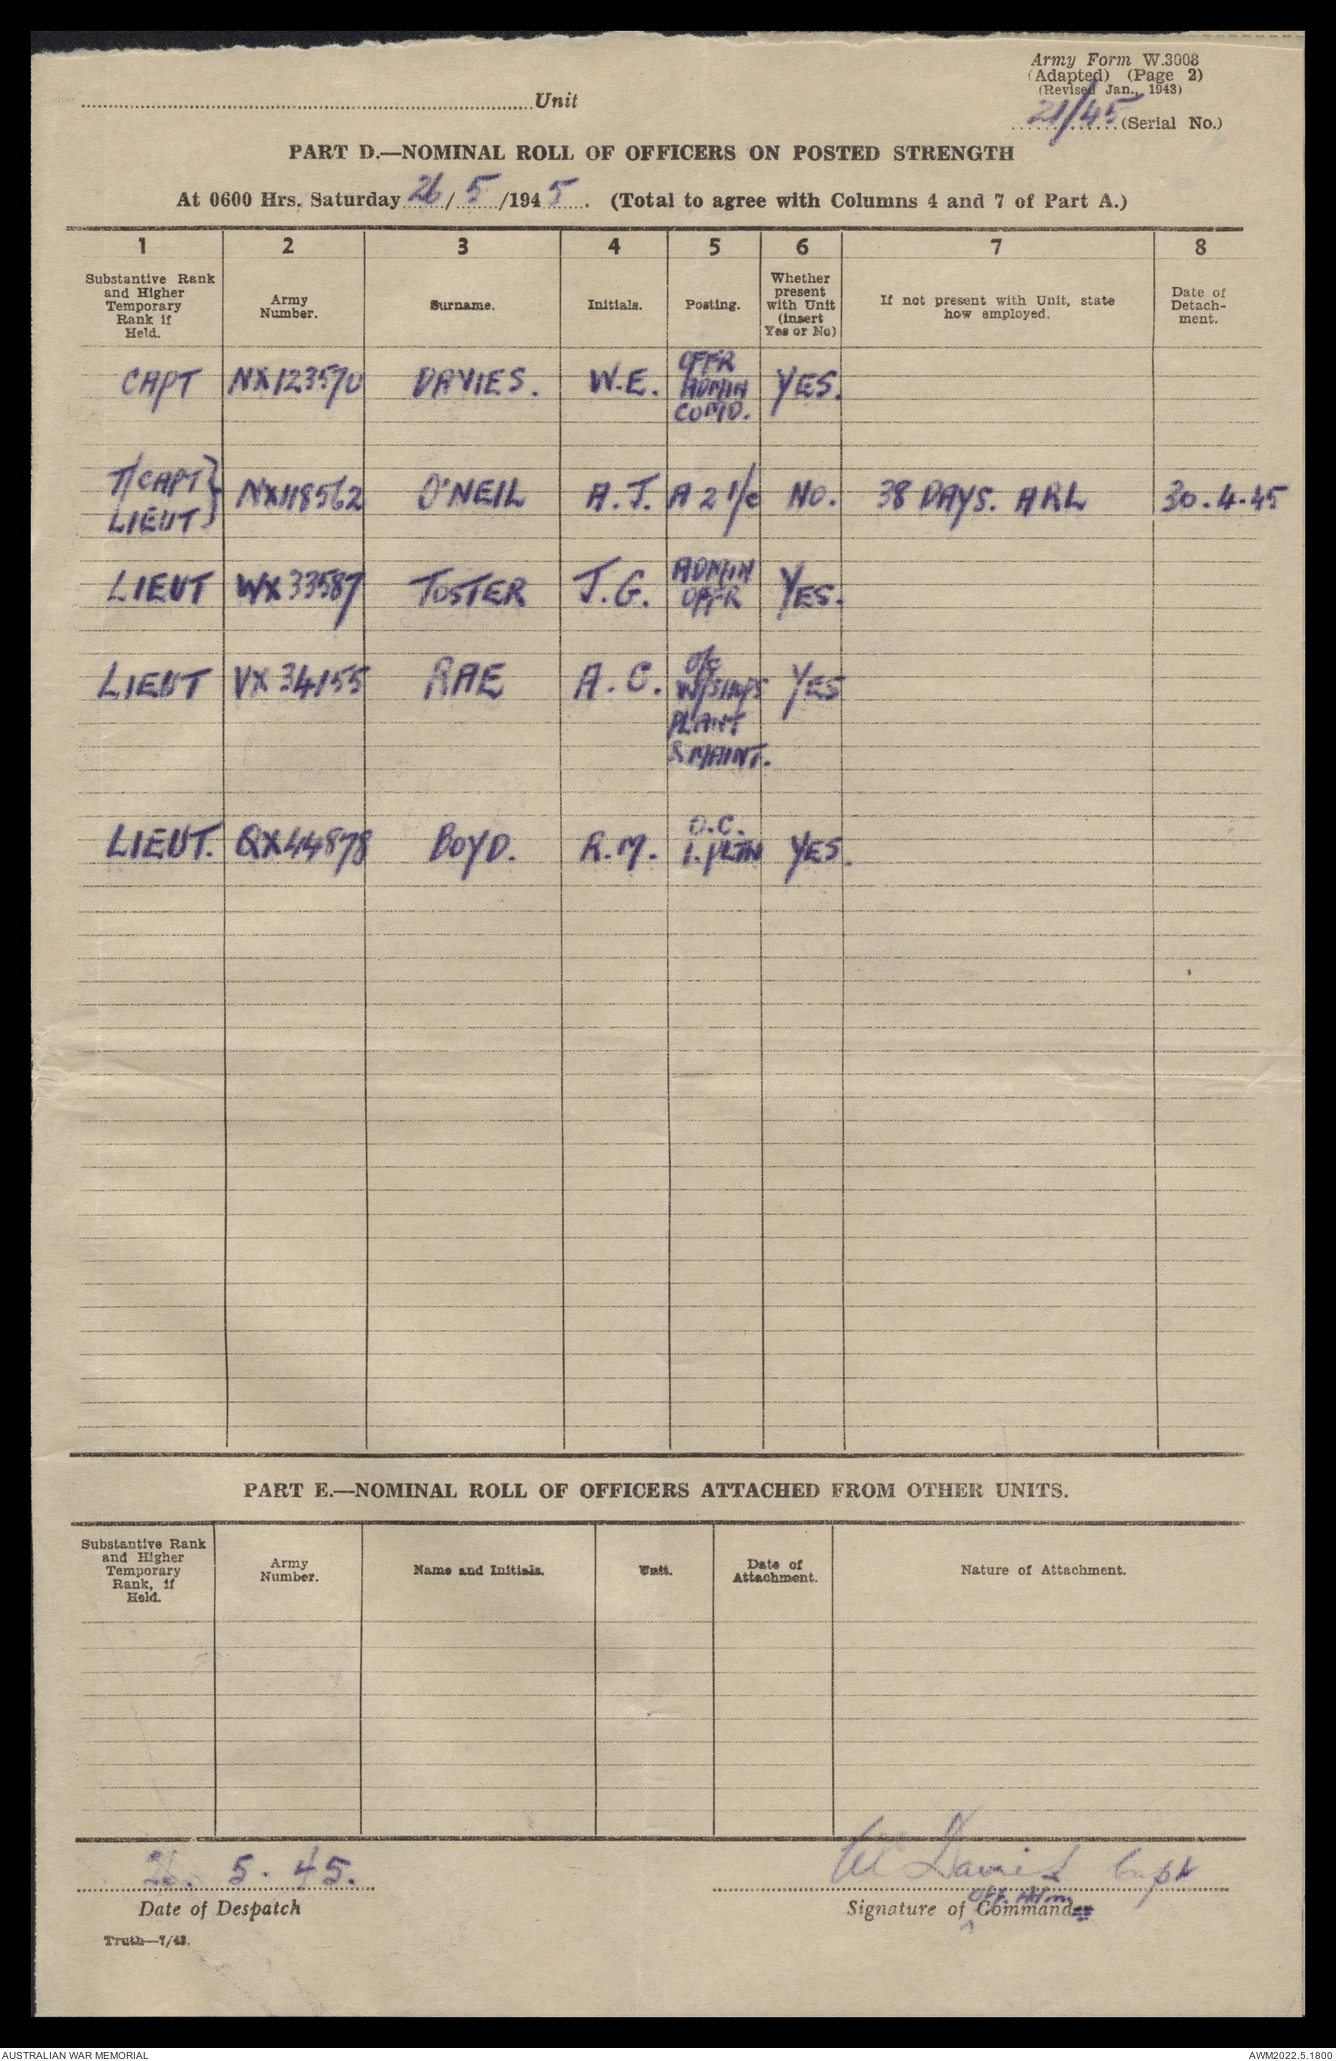 Army Form W.3008
(Adapted) (Page 2)
(Revised Jan., 1943)
Unit
21/45 (Serial No.)
PART D.—NOMINAL ROLL OF OFFICERS ON POSTED STRENGTH
At 0600 Hrs. Saturday 26/5/1945. (Total to agree with Columns 4 and 7 of Part A.)
1 2 3 4 5 6 7 8
Substantive Rank and Higher Temporary Rank if Held.
Army Number.
Surname.
Initials.
Posting.
Whether present with Unit (insert Yes or No)
If not present with Unit, state how employed.
Date of Detachment.
CAPT NX123570 DAVIES. W.E. OFFR ADMIN COMD. YES.
T/CAPT } LIEUT NX118562 O'NEIL A.J. A 2 I/C NO. 38 DAYS. ARL 30.4.45
LIEUT WX33587 TOSTER J.G. ADMIN OFFR YES.
LIEUT VX34155 RAE A.C. O/C W/SHOPS PLANT & MAINT. YES
LIEUT. QX44878 BOYD. R.M. O.C. 1. PLTN YES.
PART E.—NOMINAL ROLL OF OFFICERS ATTACHED FROM OTHER UNITS.
Substantive Rank and Higher Temporary Rank, if Held.
Army Number.
Name and Initials.
Unit.
Date of Attachment.
Nature of Attachment.
26. 5. 45.
WE Davies Capt
Date of Despatch
Off. Adm
Signature of Command
Truth—7/43.
AUSTRALIAN WAR MEMORIAL
AWM2022.5.1800